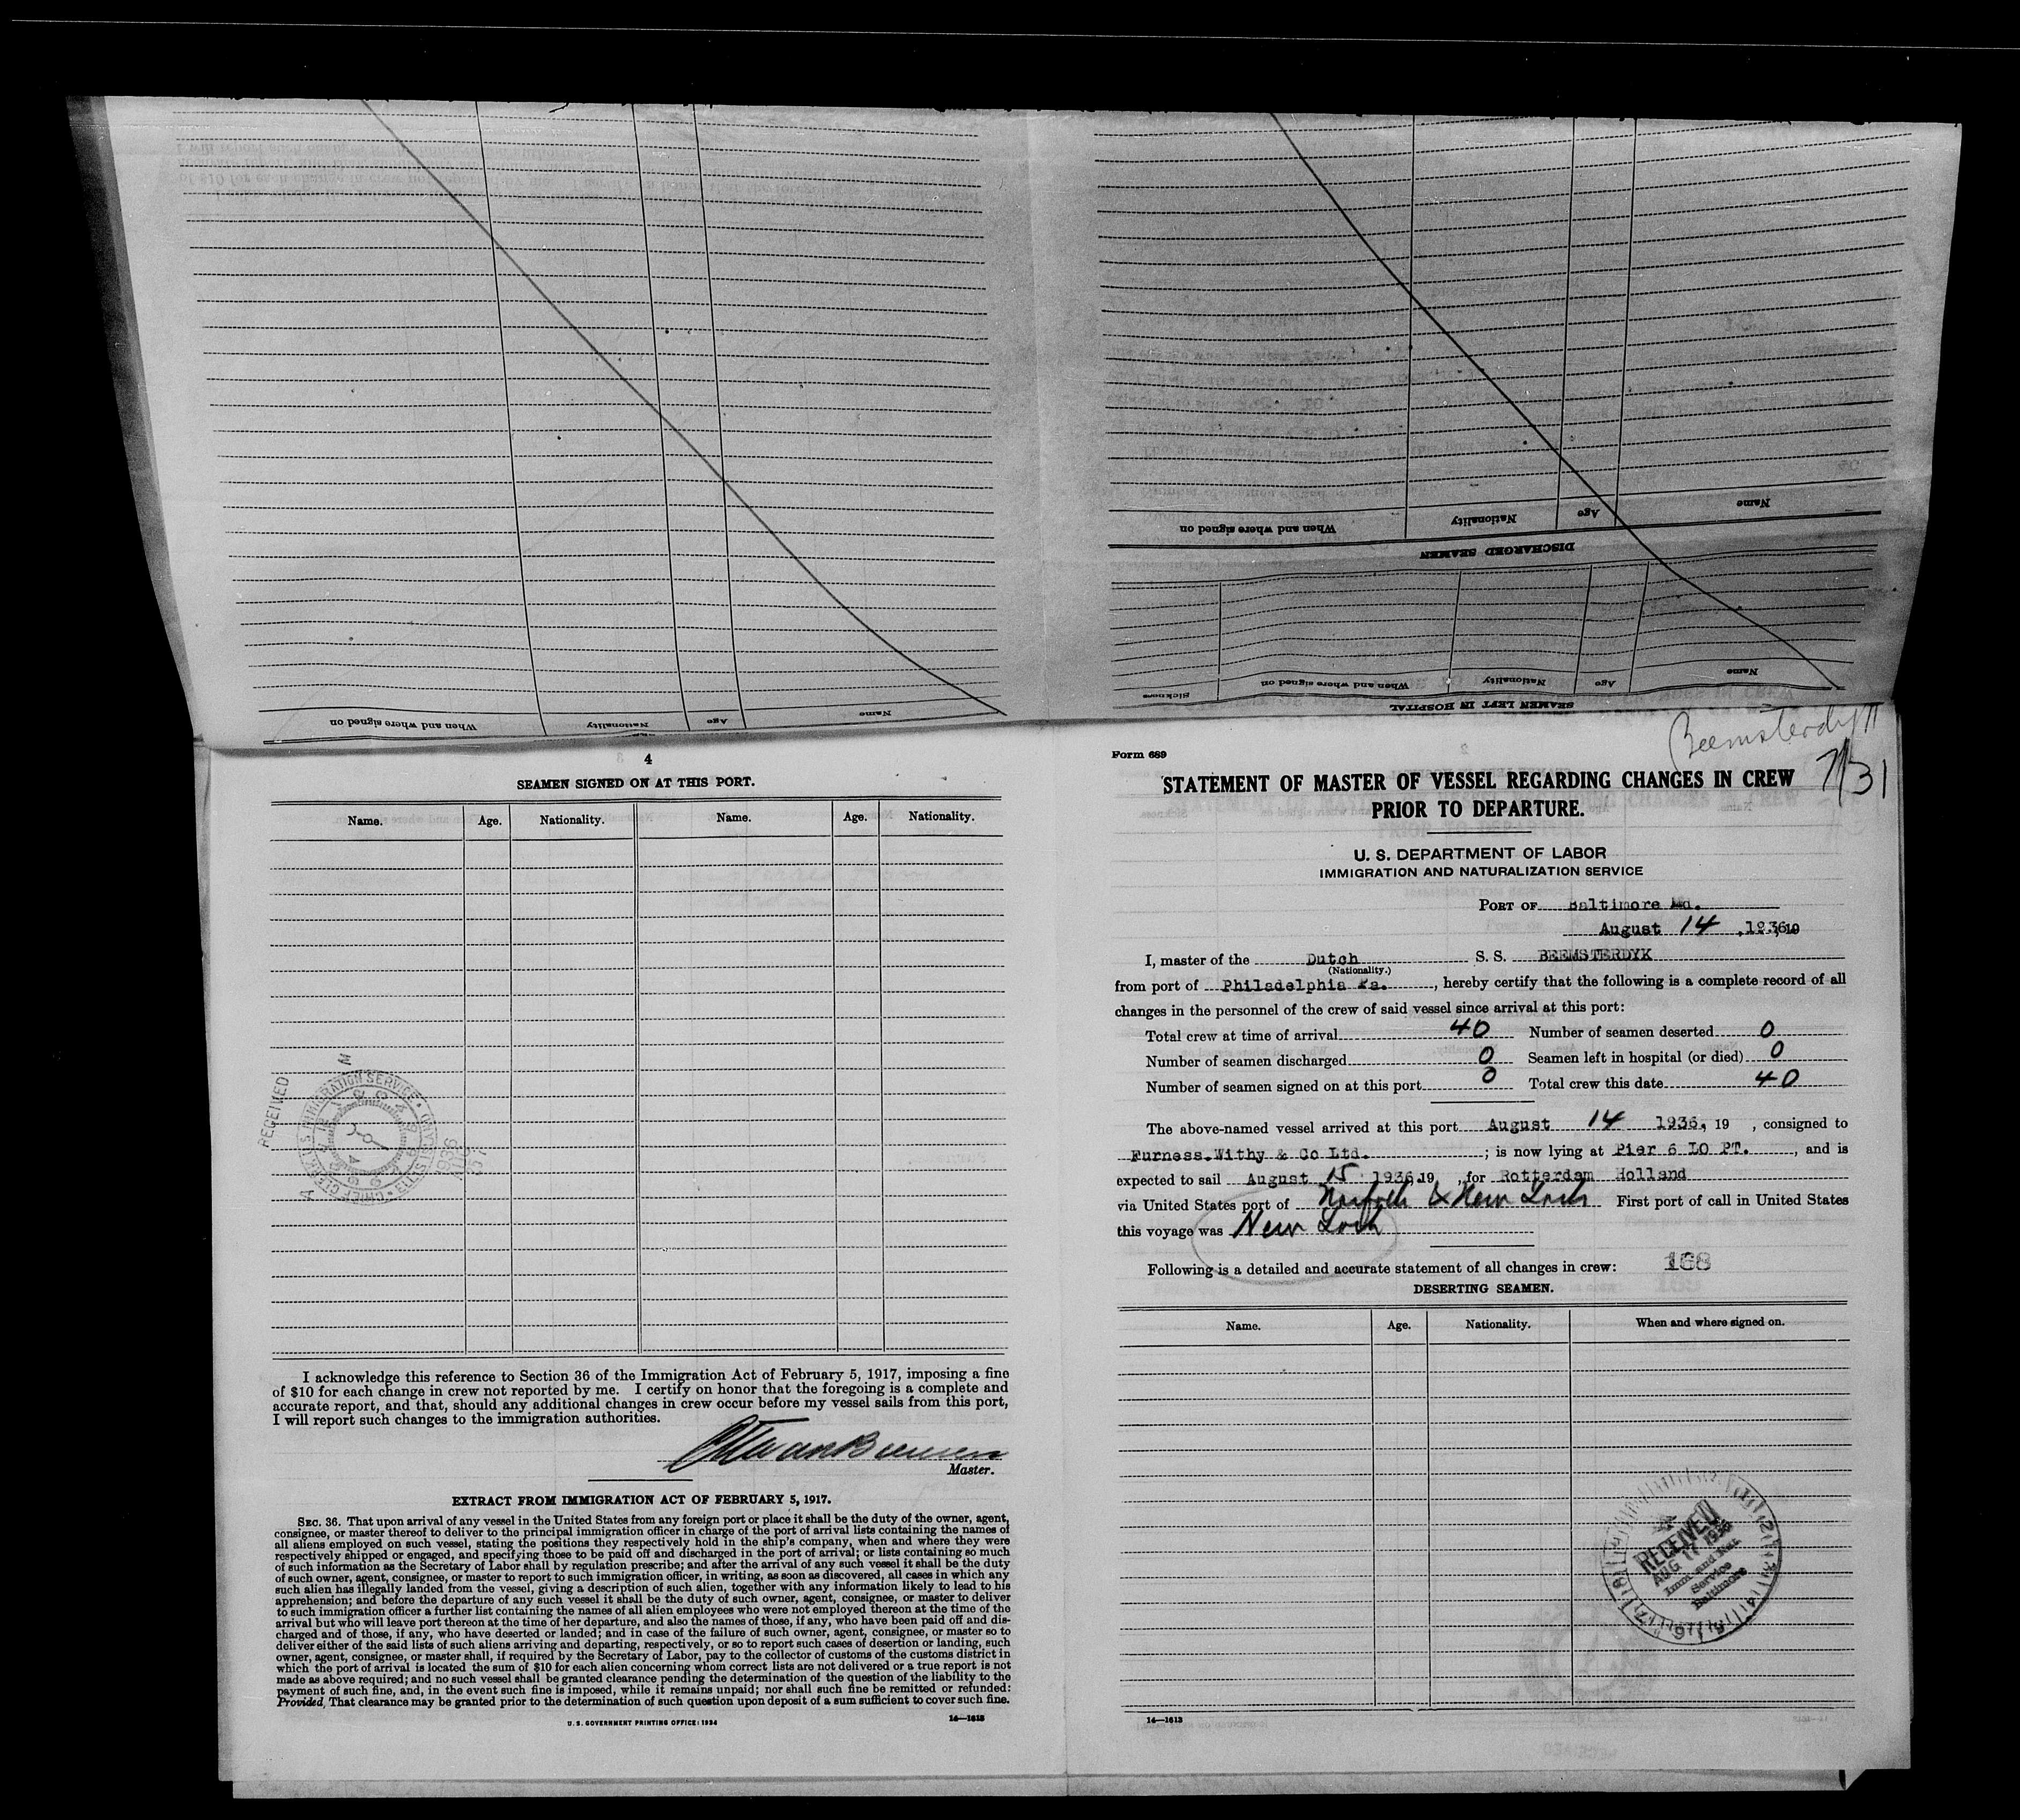 When and where signed on
Nationality
Age
Name
Name
Age
Nationality
When and where signed on
DISCHARGED SEAMEN
Name
Age
Nationality
When and where signed on
Sickness
SEAMEN LEFT IN HOSPITAL
4
SEAMEN SIGNED ON AT THIS PORT.
Name. Age. Nationality. Name. Age. Nationality.
RECEIVED
I acknowledge this reference to Section 36 of the Immigration Act of February 5, 1917, imposing a fine
of $10 for each change in crew not reported by me. I certify on honor that the foregoing is a complete and
accurate report, and that, should any additional changes in crew occur before my vessel sails from this port,
I will report such changes to the immigration authorities.
Master.
EXTRACT FROM IMMIGRATION ACT OF FEBRUARY 5, 1917.
SEC. 36. That upon arrival of any vessel in the United States from any foreign port or place it shall be the duty of the owner, agent,
consignee, or master thereof to deliver to the principal immigration officer in charge of the port of arrival lists containing the names of
all aliens employed on such vessel, stating the positions they respectively hold in the ship's company, when and where they were
respectively shipped or engaged, and specifying those to be paid off and discharged in the port of arrival; or lists containing so much
of such information as the Secretary of Labor shall by regulation prescribe; and after the arrival of any such vessel it shall be the duty
of such owner, agent, consignee, or master to report to such immigration officer, in writing, as soon as discovered, all cases in which any
such alien has illegally landed from the vessel, giving a description of such alien, together with any information likely to lead to his
apprehension; and before the departure of any such vessel it shall be the duty of such owner, agent, consignee, or master to deliver
to such immigration officer a further list containing the names of all alien employees who were not employed thereon at the time of the
arrival but who will leave port thereon at the time of her departure, and also the names of those, if any, who have been paid off and dis-
charged and of those, if any, who have deserted or landed; and in case of the failure of such owner, agent, consignee, or master so to
deliver either of the said lists of such aliens arriving and departing, respectively, or so to report such cases of desertion or landing, such
owner, agent, consignee, or master shall, if required by the Secretary of Labor, pay to the collector of customs of the customs district in
which the port of arrival is located the sum of $10 for each alien concerning whom correct lists are not delivered or a true report is not
made as above required; and no such vessel shall be granted clearance pending the determination of the question of the liability to the
payment of such fine, and, in the event such fine is imposed, while it remains unpaid; nor shall such fine be remitted or refunded:
Provided, That clearance may be granted prior to the determination of such question upon deposit of a sum sufficient to cover such fine.
U. S. GOVERNMENT PRINTING OFFICE: 1934 14—1613
Beemsterdyk
7/31
Form 689
STATEMENT OF MASTER OF VESSEL REGARDING CHANGES IN CREW
PRIOR TO DEPARTURE.
U. S. DEPARTMENT OF LABOR
IMMIGRATION AND NATURALIZATION SERVICE
PORT OF Baltimore Md.
August 14, 1936, 19
I, master of the Dutch S. S. BEEMSTERDYK
(Nationality.)
from port of Philadelphia Pa., hereby certify that the following is a complete record of all
changes in the personnel of the crew of said vessel since arrival at this port:
Total crew at time of arrival 40 Number of seamen deserted 0
Number of seamen discharged 0 Seamen left in hospital (or died) 0
Number of seamen signed on at this port 0 Total crew this date 40
The above-named vessel arrived at this port August 14 1936, 19 , consigned to
Furness.Withy & Co Ltd. ; is now lying at Pier 6 LO PT. , and is
expected to sail August 15 1936,19 , for Rotterdam Holland
via United States port of Norfolk & New York First port of call in United States
this voyage was New York
Following is a detailed and accurate statement of all changes in crew: 168
DESERTING SEAMEN.
Name. Age. Nationality. When and where signed on.
RECEIVED
AUG 17 1936
Imm. and Nat.
Service
Baltimore
14—1613